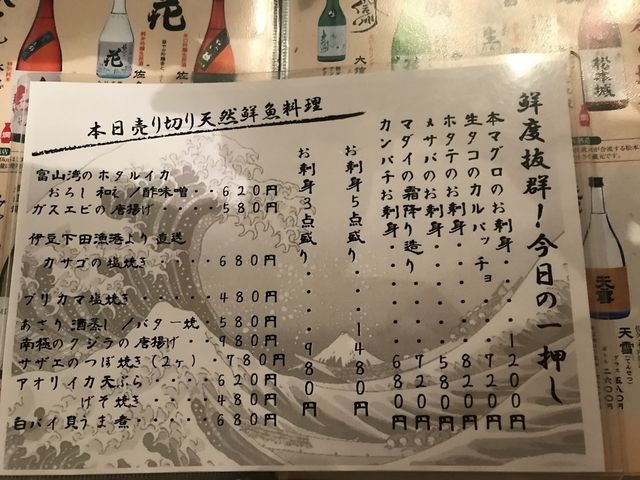 鮮度抜群!今日の一押し
本マグロのお刺身・・・・1200円
生タコのカルパッチョ・・・720円
ホタテのお刺身・・・・・880円
〆サバのお刺身・・・・・580円
マダイの霜降り造り・・・720円
カンパチお刺身・・・・・680円
お刺身5点盛り・・・1480円
お刺身3点盛り・・・980円
本日売り切り天然鮮魚料理
富山湾のホタルイカ
おろし和え/酢味噌・・620円
ガスエビの唐揚げ・・・580円
伊豆下田漁港より直送
カサゴの塩焼き・・・・680円
ブリカマ塩焼き・・・・・480円
あさり酒蒸し/バター焼 580円
南極のクジラの唐揚げ・・980円
サザエのつぼ焼き(2ヶ)・780円
アオリイカ天ぷら・・・・620円
げそ焼き・・・・480円
白バイ貝うま煮・・・・・680円
花
松本城
天雪
天雪